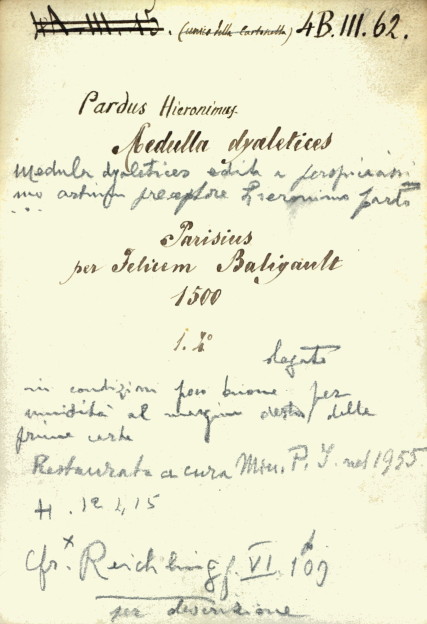 4A.III.15. (unito della Cartonella) 4B.III.62.
Pardus Hieronimus
Medulla dyaletices
Medula dyaletices edita a perspicacissi
mo artium preceptore Hieronimo pardo
...
Parisius
per Felicem Baligault
1500
slegato
in condizioni poco buone per
umidità al margine destro delle
prime carte
Restaurata a cura Min. P. I. nel 1955
H. 12415
cfr. Reichling f. VI. 109
per descrizione